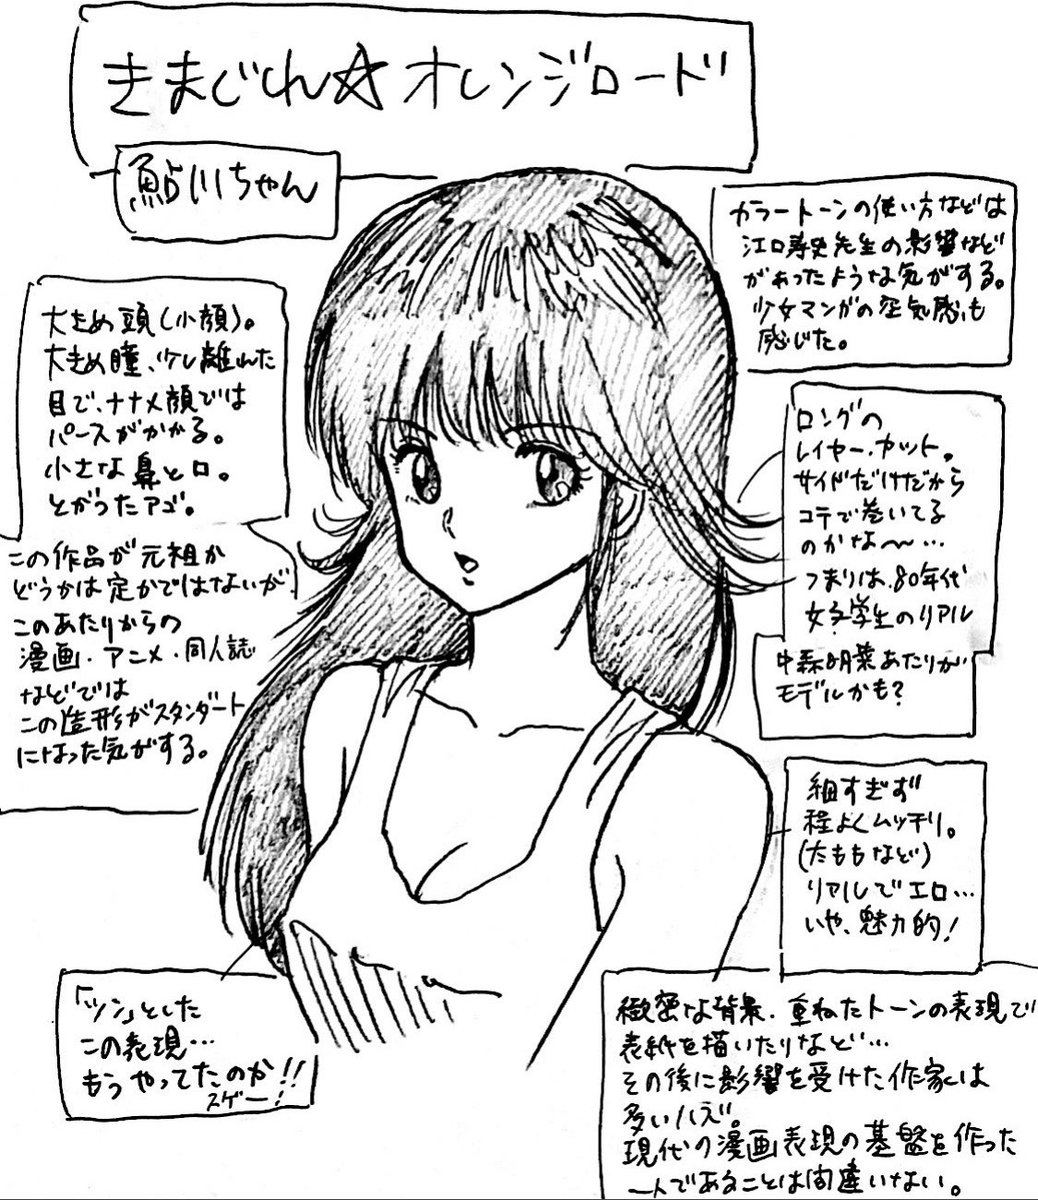 きまぐれ☆オレンジロード
鮎川ちゃん
カラートーンの使い方などは
江口寿史先生の影響など
があったような気がする。
少女マンガの空気感も
感じた。
大きめ頭(小顔)。
大きめ瞳、少し離れた
目で、ナナメ顔では
パースがかかる。
小さな鼻と口。
とがったアゴ。
この作品が元祖か
どうかは定かではないが、
このあたりからの
漫画・アニメ・同人誌
などでは
この造形がスタンダート
になった気がする。
ロングの
レイヤーカット。
サイドだけだから
コテで巻いてる
のかな〜…
つまりは、80年代
女子学生のリアル
中森明菜あたりが
モデルかも?
細すぎず
程よくムッチリ。
(たももなど)
リアルでエロ…
いや、魅力的!
「ツン」とした
この表現…
もうやってたのか!!
スゲー!
緻密な背景、重ねたトーンの表現で
表紙を描いたりなど…
その後に影響を受けた作家は
多いハズ。
現代の漫画表現の基盤を作った
一人であることは間違いない。